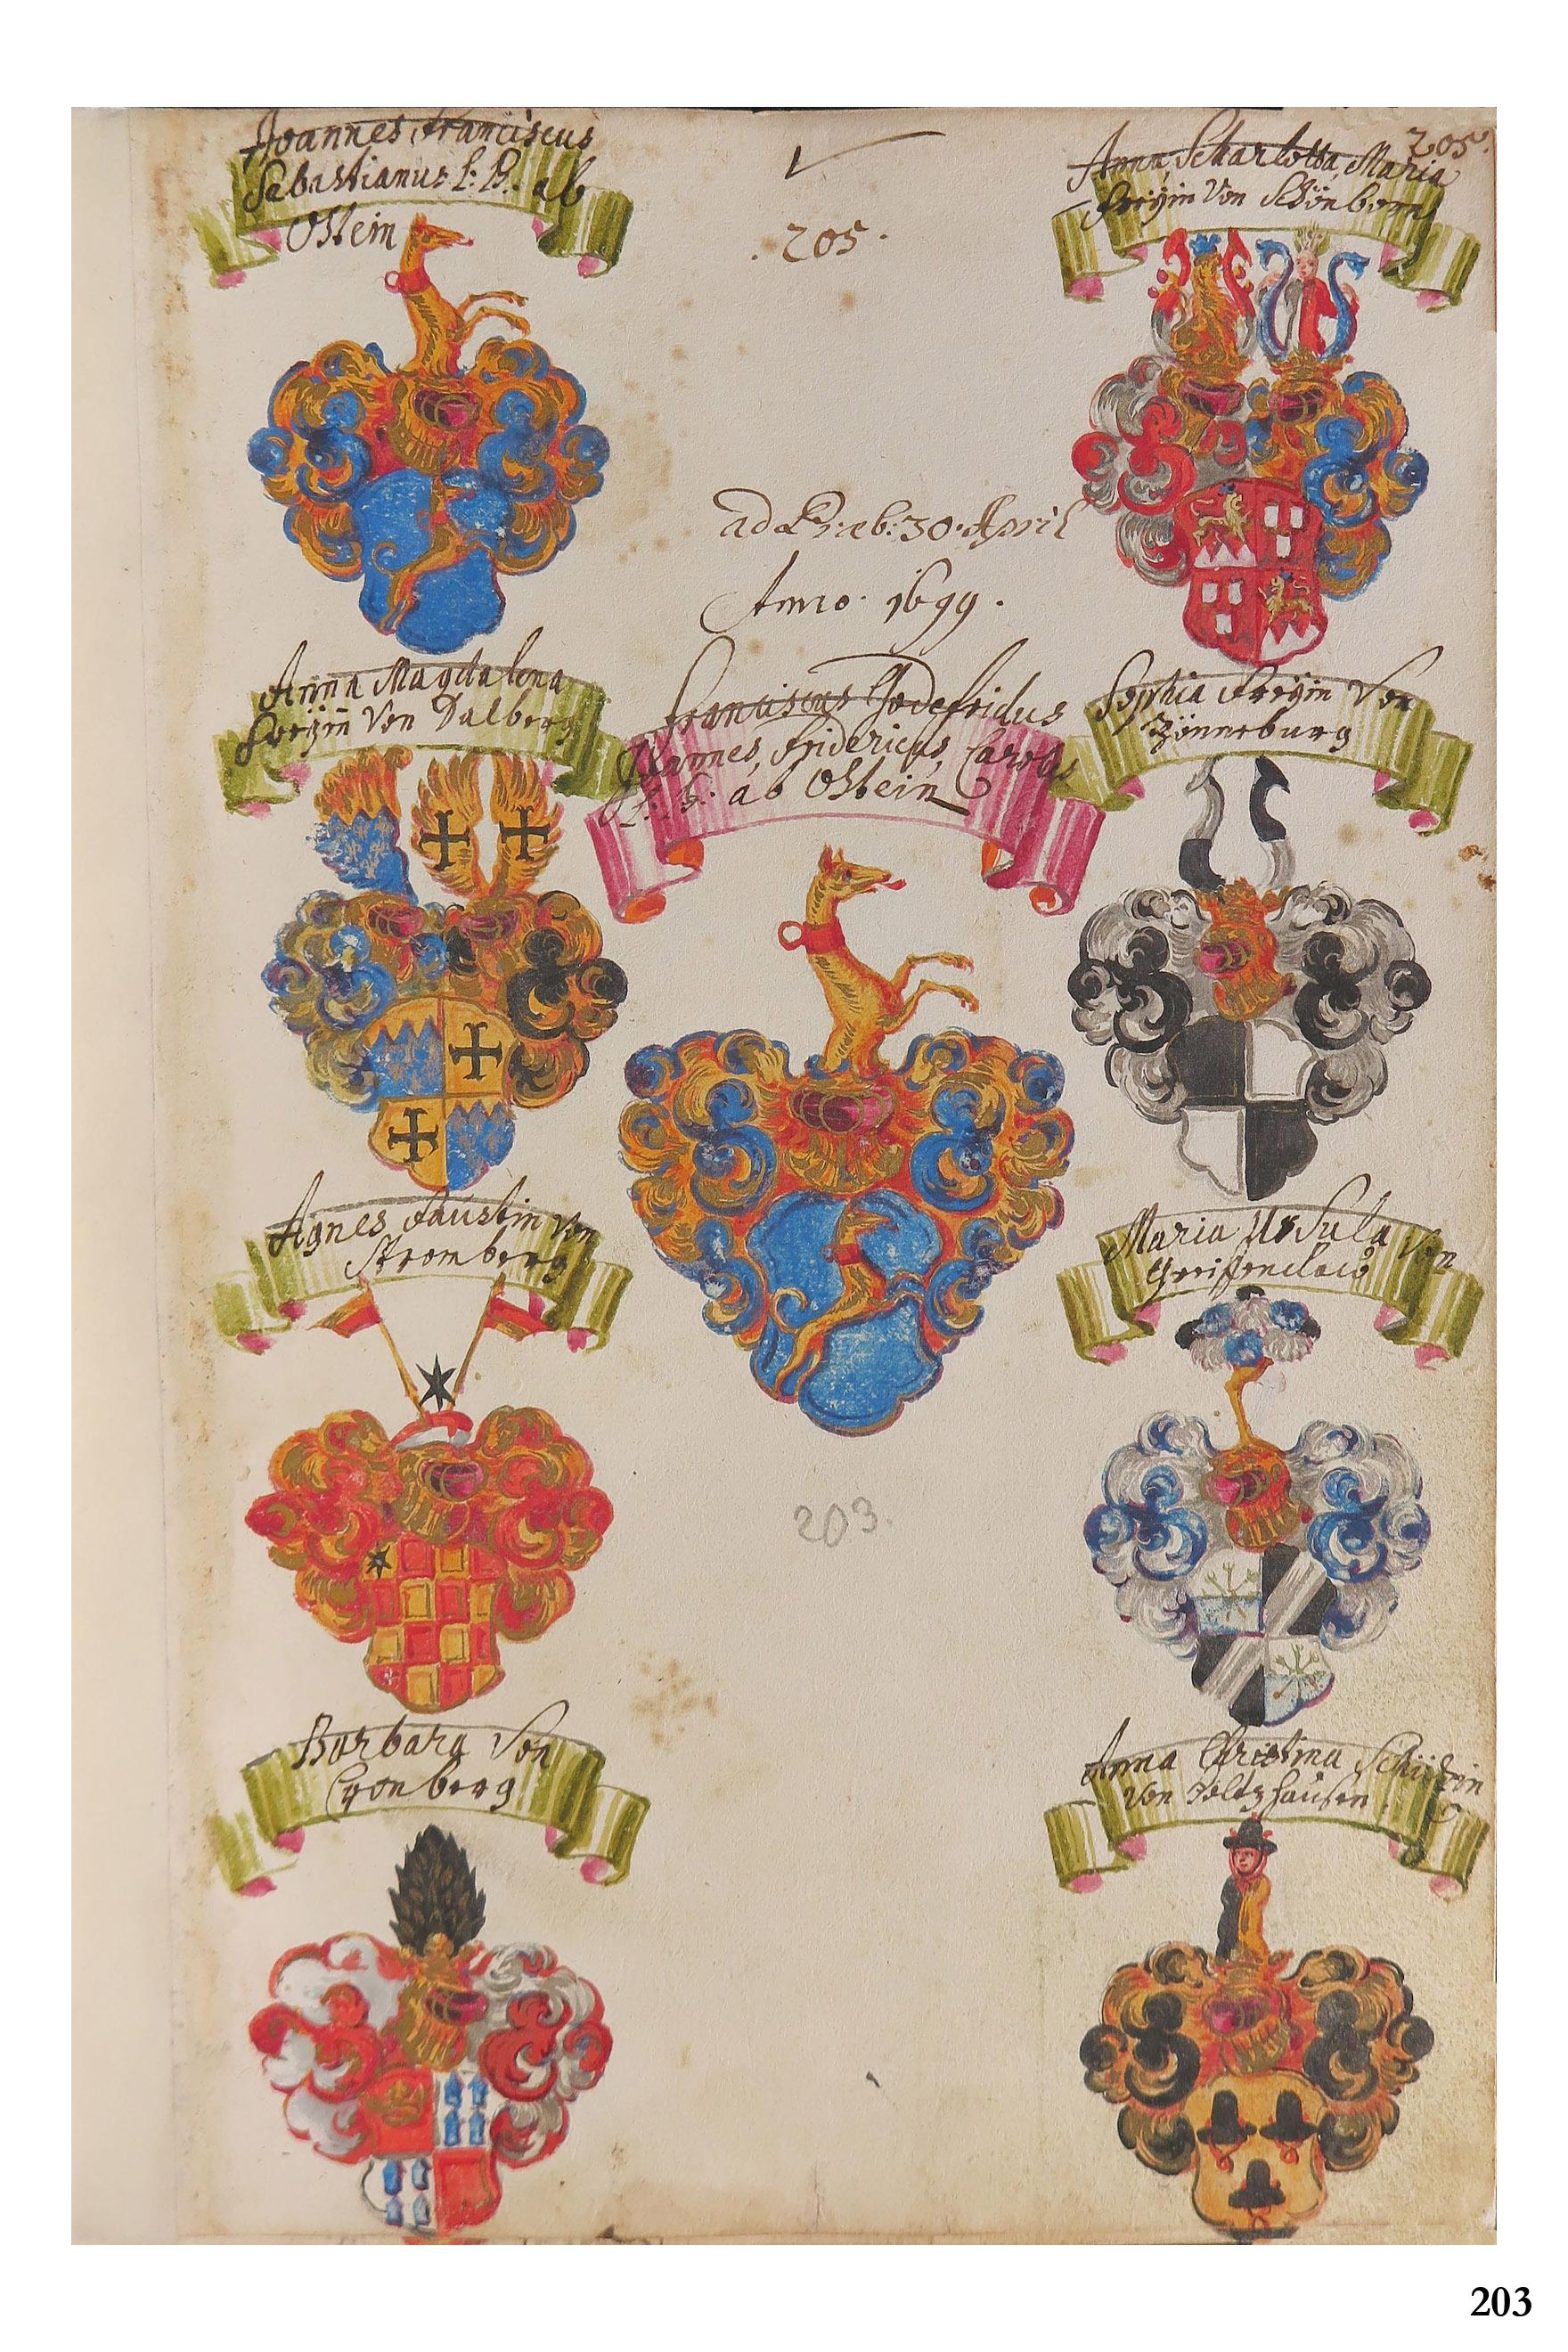 Joannes, Franciscus
Sebastianus L: B: ab
Ostein
205.
Anna, Scharlotta, Maria
Freÿin Von Schönborn
205.
ad Præb: 30. April
Anno 1699.
Anna Magdalena
Freÿin Von Dalberg
Franciscus Godefridus
Joannes, Fridericus, Carolus
L: B: ab Ostein
Sophia Freÿin Von
Agnes Faustin Von
Stromberg
Maria Ursula Von
Greiffenclaw
203.
Barbara Von
Cronberg
Anna Christina
Von
203